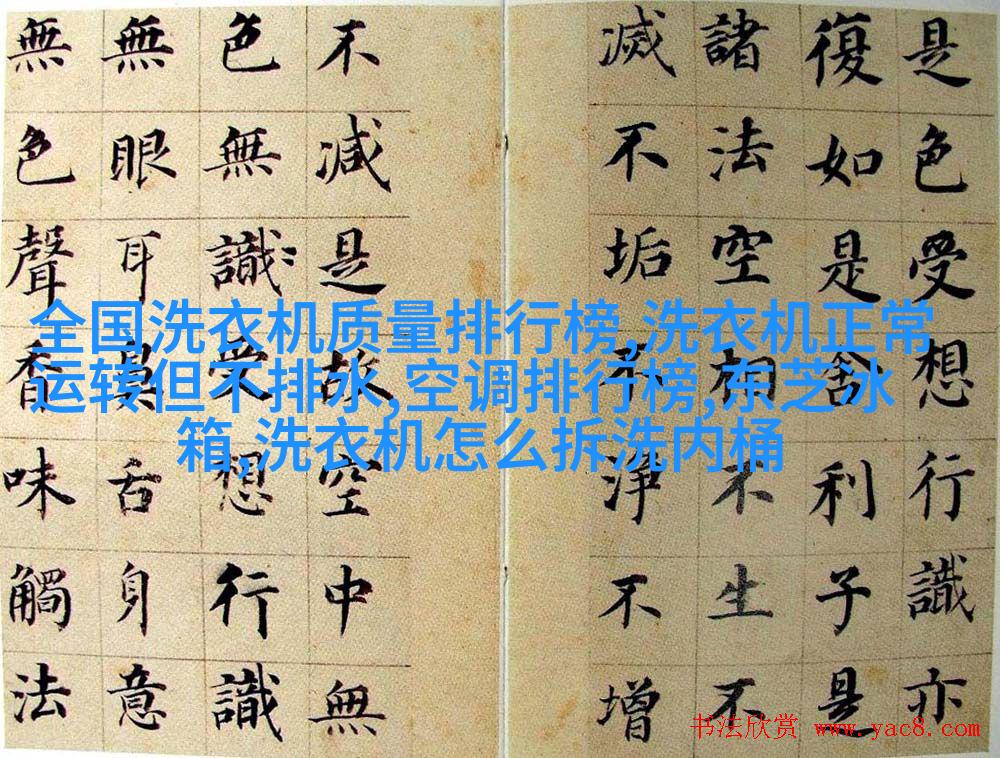 是色受想行識亦
復如是舍利子是
諸法空相不生不
滅不垢不淨不增
不減是故空中無
色無識受想行識
無眼耳鼻舌身意
無色聲香味觸法
全国洗衣机质量排行榜,洗衣机正常
运转但不排水,空调排行榜,东芝冰
箱,洗衣机怎么拆洗内桶
书法欣赏 www.yac8.com